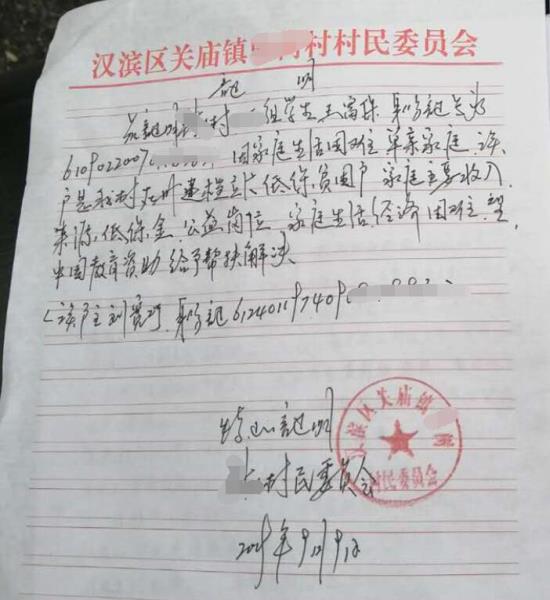 汉滨区关庙镇 村村民委员会
证 明
兹证明 村 组学生王富 身份证号为
6109022007 因家庭生活困难 单亲家庭 该
户是我村在册建档立卡低保贫困户 家庭主要收入
来源 低保金 公益岗位 家庭生活经济困难 望
中国教育资助给予帮扶解决
(该户主刘 身份证612401197409
特此证明
村民委员会
2019年9月9日
汉滨区关庙镇 村民委员会